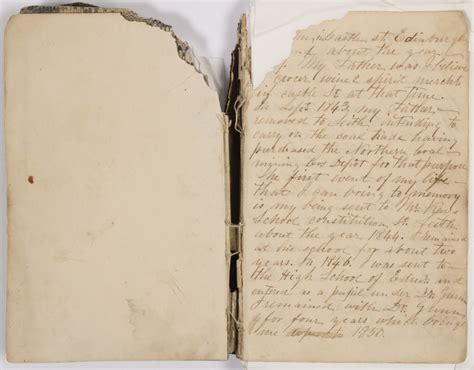 in Castle st. Edinburgh
about the year
My Father was
grocer wine & spirit merch
Castle St at that time
In Sept 1843, my Father
removed to Leith intending to
carry on the coal trade having
purchased the Northern Coal
mining Cos Depot for that purpose
The first event of my life
that I can bring to memory
is my being sent to Mr
School constitution St. Leith
about the year 1844. I remained
at his school for about two
years. In 1846 I was sent to
the High School of Edinr and
entered as a pupil under Dr
I remained with Dr
for four years which brings
me 1850.